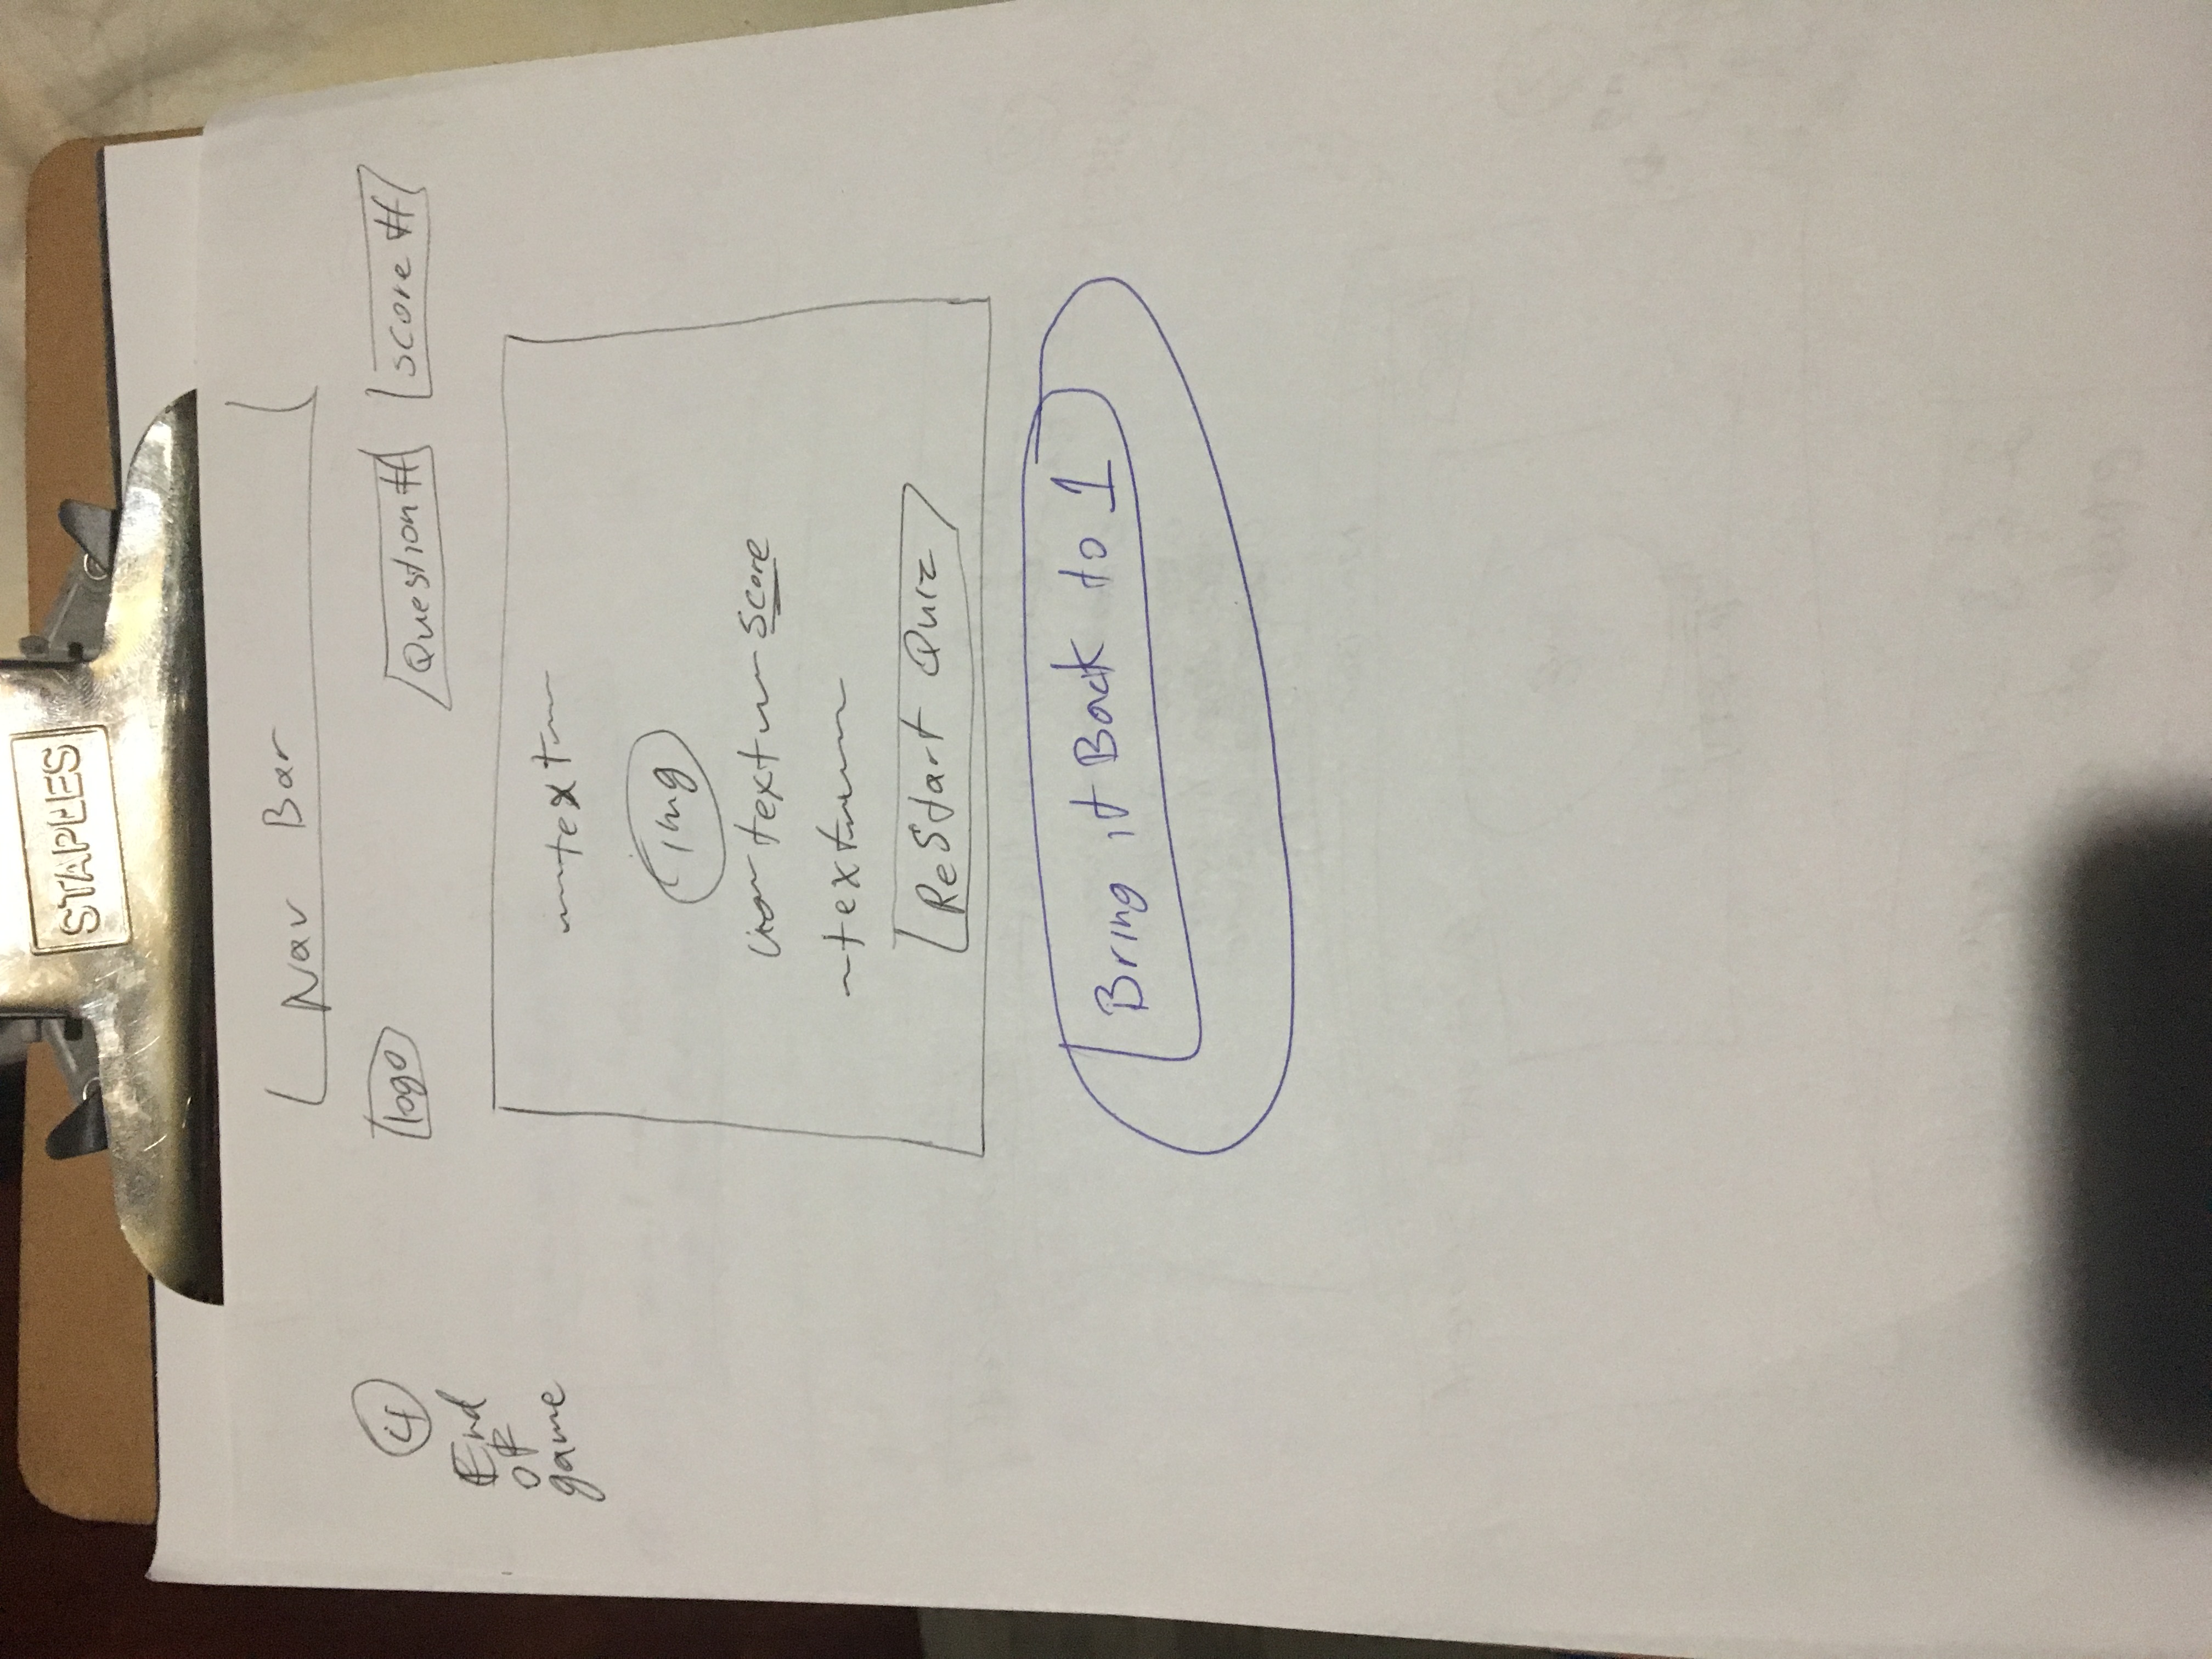 STAPLES
Nav Bar
4
End
of
game
logo
Question #
Score #
text
img
text Score
text
ReStart Quiz
Bring it Back to 1